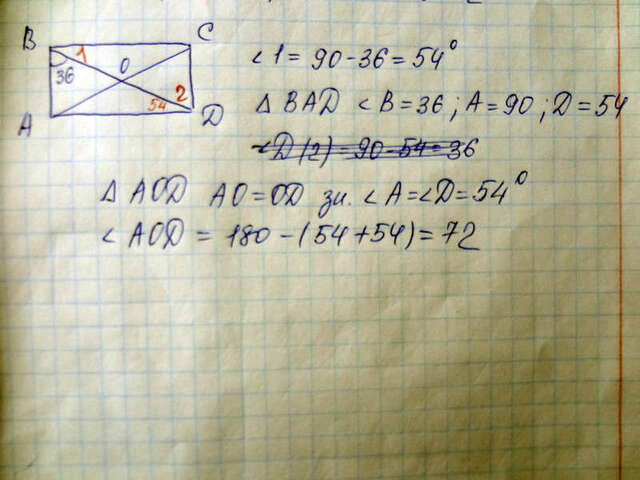 B C
1
36 O
2
54
A D
< 1 = 90 - 36 = 54°
Δ BAD < B = 36 ; A = 90 ; D = 54
< D (2) = 90 - 54 = 36
Δ AOD AO = OD зн. < A = < D = 54°
< AOD = 180 - (54 + 54) = 72